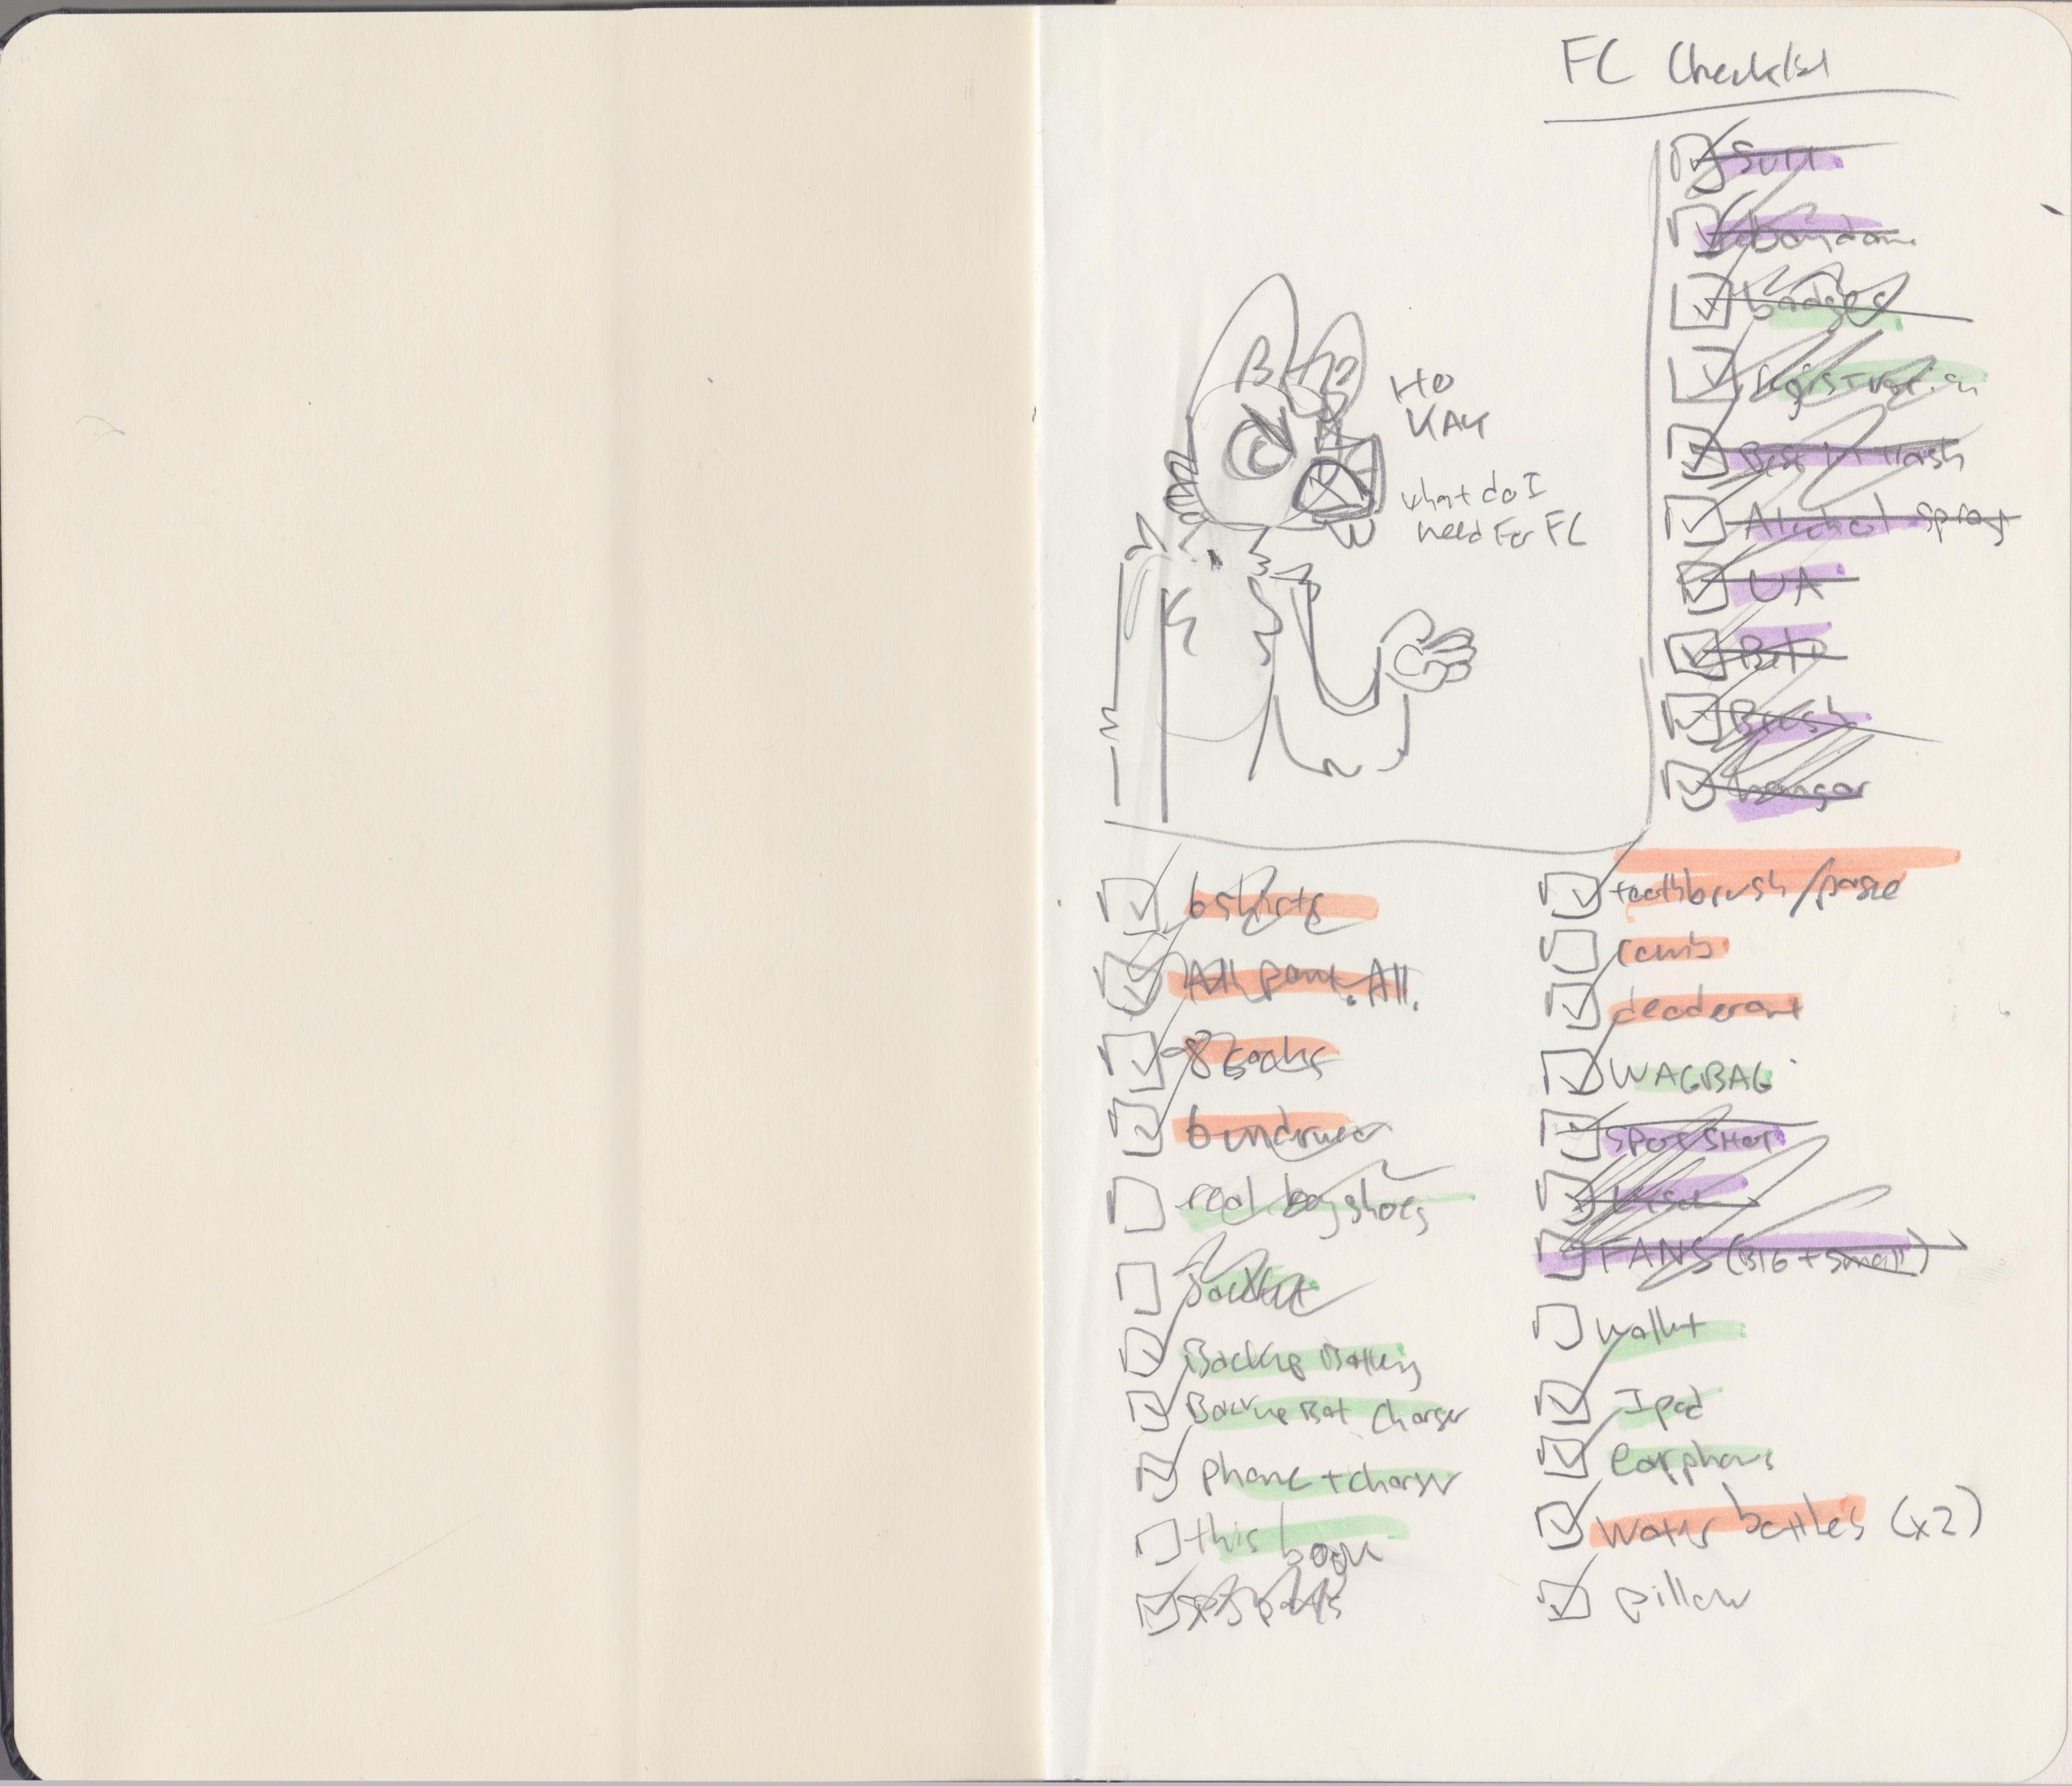 FC Checklist
HO
KAY
what do I
need for FC
Suit
bandana
badges
registration
Best in trash
Alcohol spray
UA
Brush
hangar
6 shirts
All pant. All.
8 socks
6 underwear
real boy shoes
Jacket
Backup Battery
Bat Charger
phone + charger
this book
teethbrush/paste
comb
deoderant
WAGBAG
SPOT SHOT
FANS (BIG + small)
wallet
Ipad
earphons
Water bottles (x2)
pillow